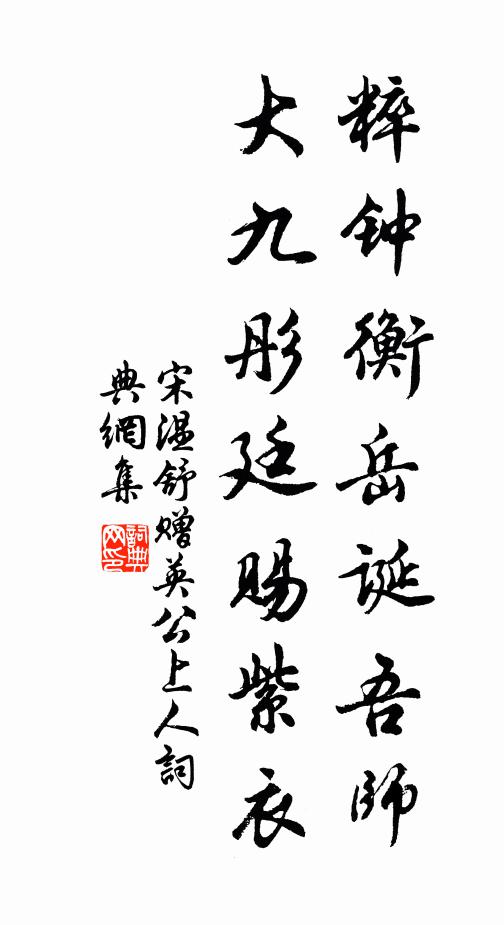 粹钟衡岳誕吾師
大九彤廷賜紫衣
宋温舒贈英公上人詞
典網集
詞典
网印